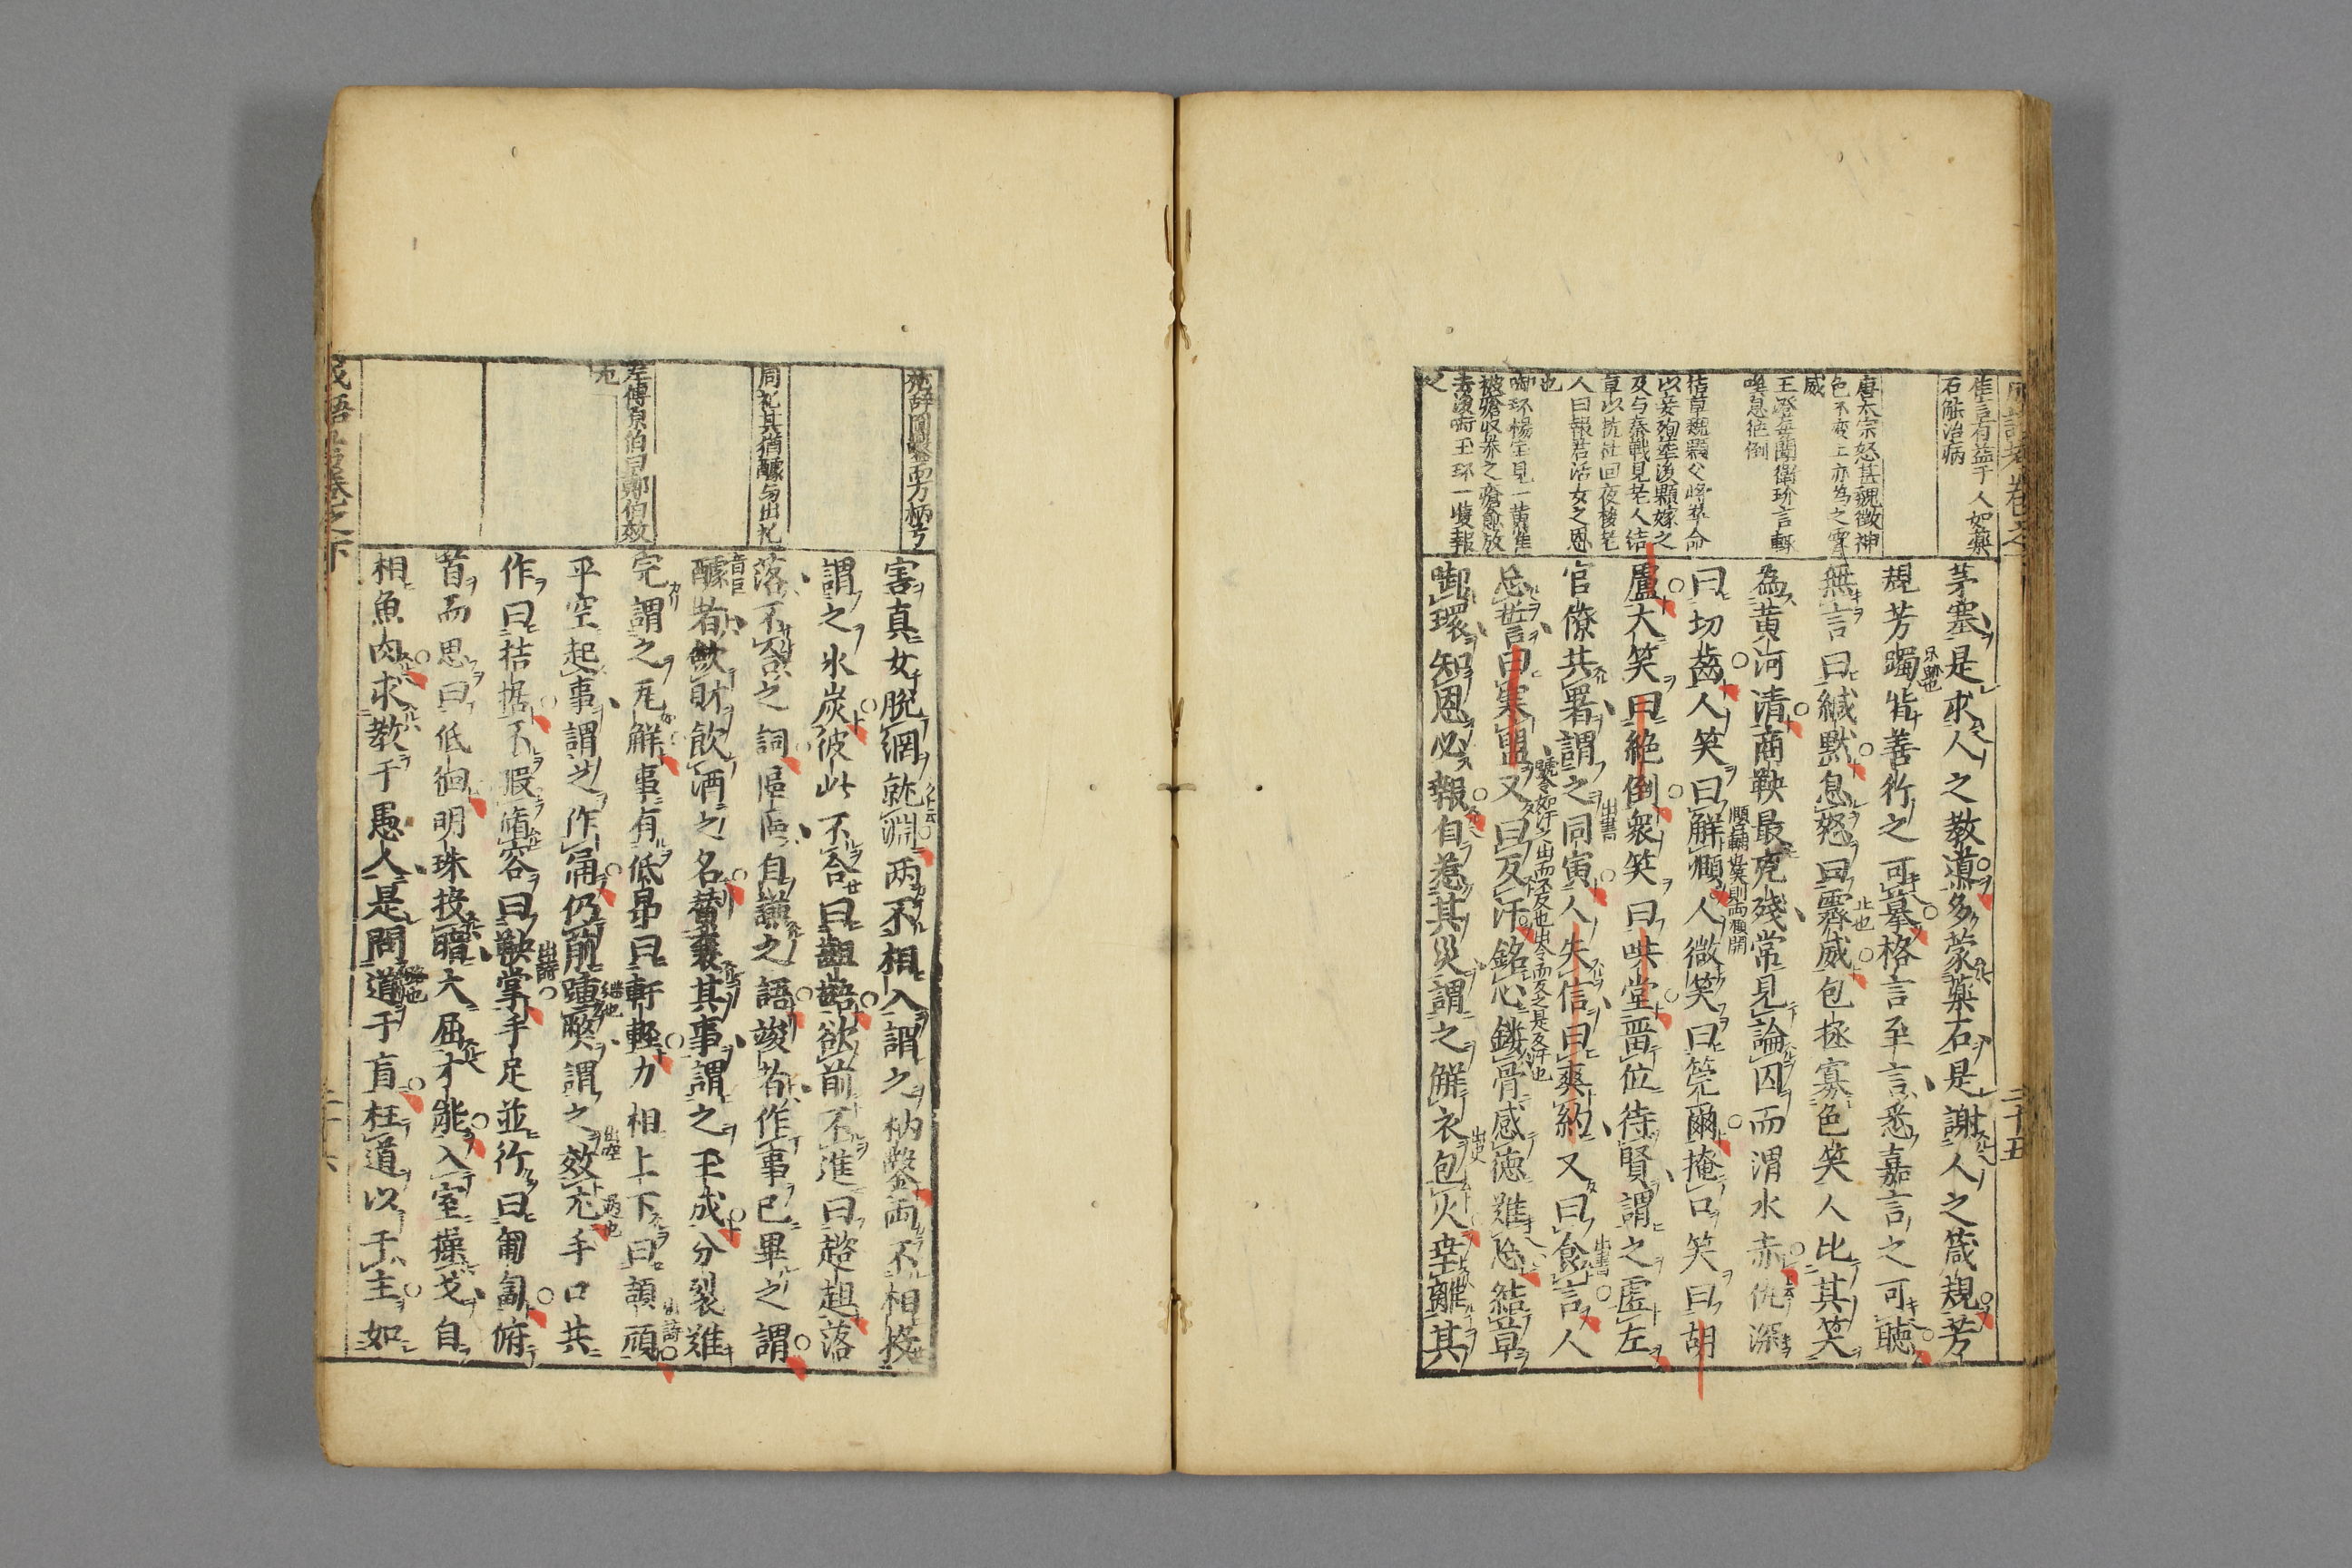 佳言有益于人如藥
石能治病
唐太宗怒甚魏徵神
色不變上亦為之霽
威
王澄每聞衛玠言輒
嘆息絶倒
結草魏顆父將卒命
以妾殉葬後顆嫁之
及与秦戰見老人結
草以抗杜回夜梦老
人曰報君活女之恩
也
啣环楊宝見一黃雀
被瘡收养之瘡愈放
去後啣玉环一雙報
之
茅塞是求人之教道多蒙藥石是謝人之箴規芳
規芳躅皆善行之可摹格言至言悉嘉言之可聴
無言曰緘默息怒曰霽威包拯寡色笑人比其笑
為黄河清商鞅最克殘常見論囚而渭水赤仇深
曰切齒人笑曰解頤人微笑曰筦爾掩口笑曰胡
盧大笑曰絶倒衆笑曰哄堂畱位待賢謂之虚左
官僚共署謂之同寅人失信曰爽約又曰食言人
忘誓曰寒盟又曰反汗銘心鏤骨感德難忘結草
啣環知恩必報自惹其災謂之觧衣包火幸離其
害真女脱網就淵两不相入謂之枘鑿両不相投
謂之氷炭彼此不合曰齟齬欲前不進曰趑趄落
落不合之詞區區自謙之語竣者作事已畢之謂
醵者飲財飲酒之名賛襄其事謂之玉成分裂難
完謂之瓦解事有低昻曰軒輊力相上下曰頡頏
平空起事謂之作俑仍前踵弊謂之效尤手口共
作曰拮据不暇脩容曰鞅掌手足並行曰匍匐俯
首而思曰低徊明珠投暗大屈才能入室操戈自
相魚肉求教于愚人是問道于盲枉道以于主如
周礼其猶醵与出礼
左傳原伯曰鄭伯效
尤